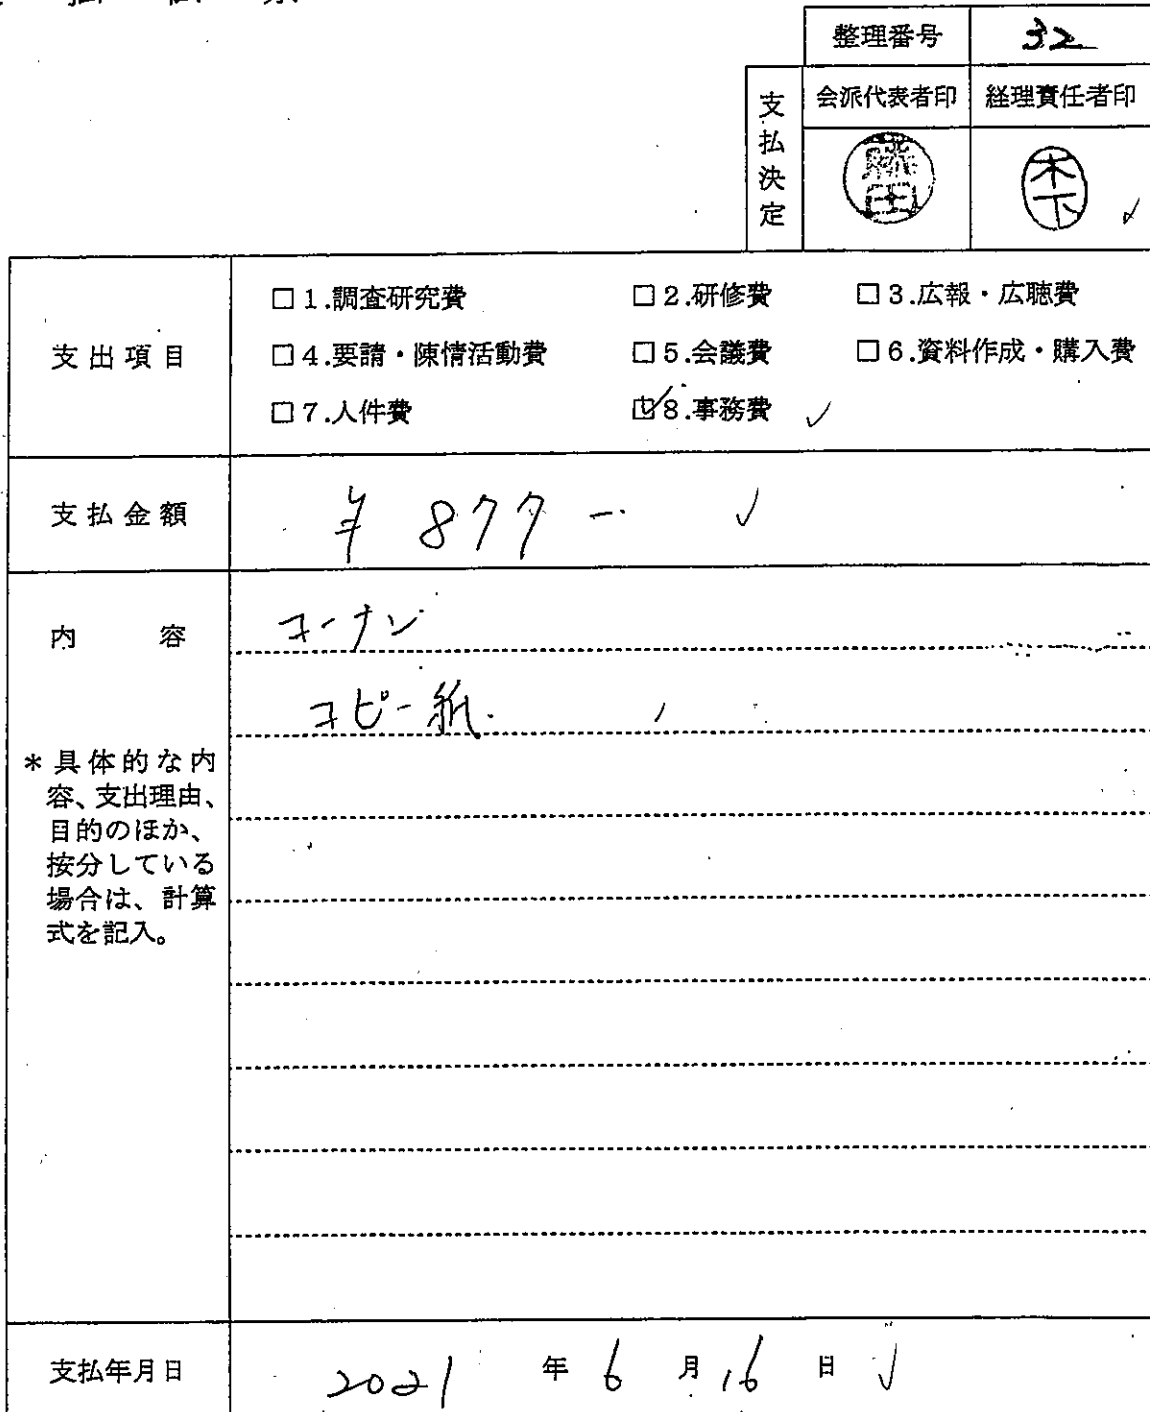 整理番号 32
支払決定
会派代表者印 経理責任者印
木下
支出項目
□1.調査研究費 □2.研修費 □3.広報・広聴費
□4.要請・陳情活動費 □5.会議費 □6.資料作成・購入費
□7.人件費 ☑8.事務費 ✓
支払金額 ¥877- ✓
内容 コーナン
コピー紙.
*具体的な内
容、支出理由、
目的のほか、
按分している
場合は、計算
式を記入。
支払年月日 2021年6月16日 ✓